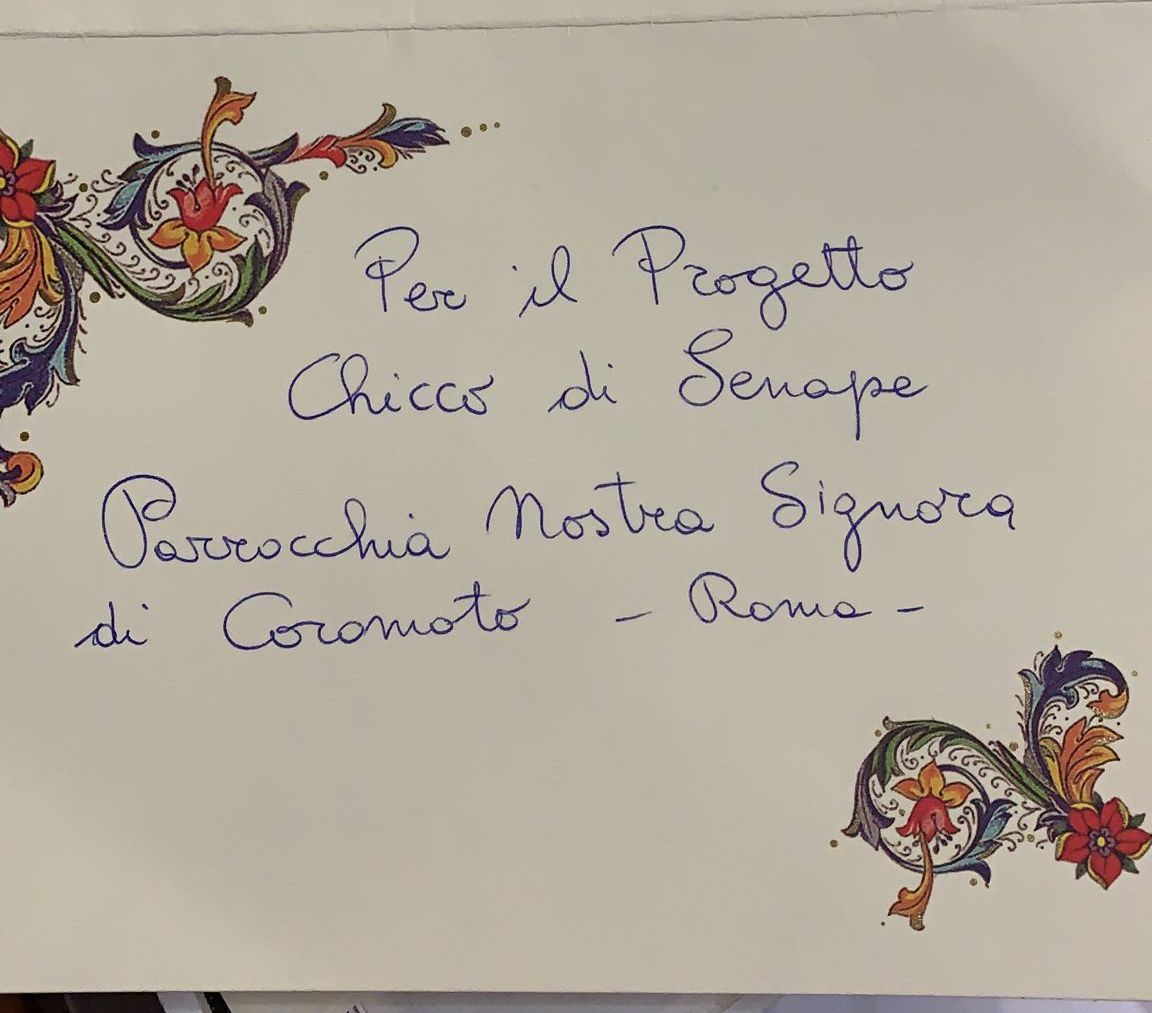 Per il Progetto
Chicco di Senape
Parrocchia Nostra Signora
di Coromoto - Roma -